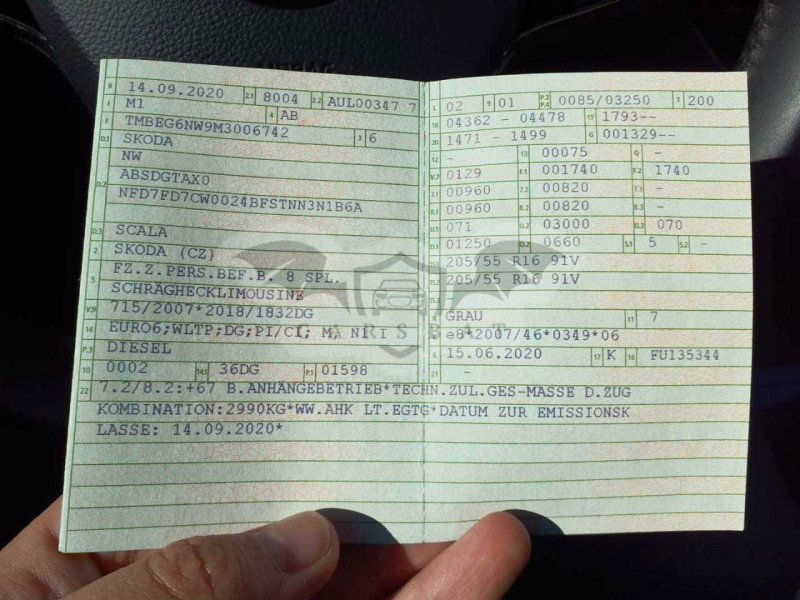 B 14.09.2020 2.1 8004 2.2 AUL00347 7
J M1 4 AB
E TMBEG6NW9M3006742 3 6
D.1 SKODA
NW
D.2 ABSDGTAX0
NFD7FD7CW0024BFSTNN3N1B6A
D.3 SCALA
2 SKODA (CZ)
5 FZ.Z.PERS.BEF.B. 8 SPL.
SCHRÄGHECKLIMOUSINE
V.9 715/2007*2018/1832DG
14 EURO6;WLTP;DG;PI/CI; M, N1 I
P.3 DIESEL
10 0002 14.1 36DG P.1 01598
22 7.2/8.2:+67 B.ANHÄNGEBETRIEB*TECHN.ZUL.GES-MASSE D.ZUG
KOMBINATION:2990KG*WW.AHK LT.EGTG*DATUM ZUR EMISSIONSK
LASSE: 14.09.2020*
L 02 9 01 P.2 P.4 0085/03250 T 200
18 04362 - 04478 19 1793--
20 1471 - 1499 G 001329--
12 - 13 00075 Q -
V.7 0129 F.1 001740 F.2 1740
7.1 00960 7.2 00820 7.3 -
8.1 00960 8.2 00820 8.3 -
U.1 071 U.2 03000 U.3 070
O.1 01250 O.2 0660 S.1 5 S.2 -
205/55 R16 91V
205/55 R16 91V
GRAU 11 7
e8*2007/46*0349*06
6 15.06.2020 17 K 16 FU135344
21 -
AIRBAG